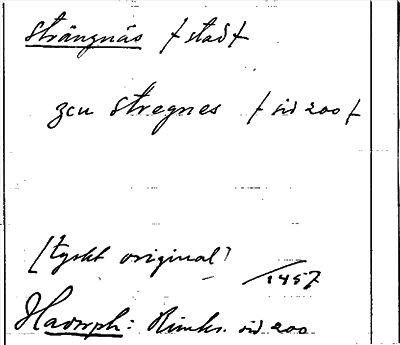 Strängnäs / stad /
zcu Stregnes / sid 200 /
(tyskt original)
/1457
Hadorph: Rimkr. sid 200